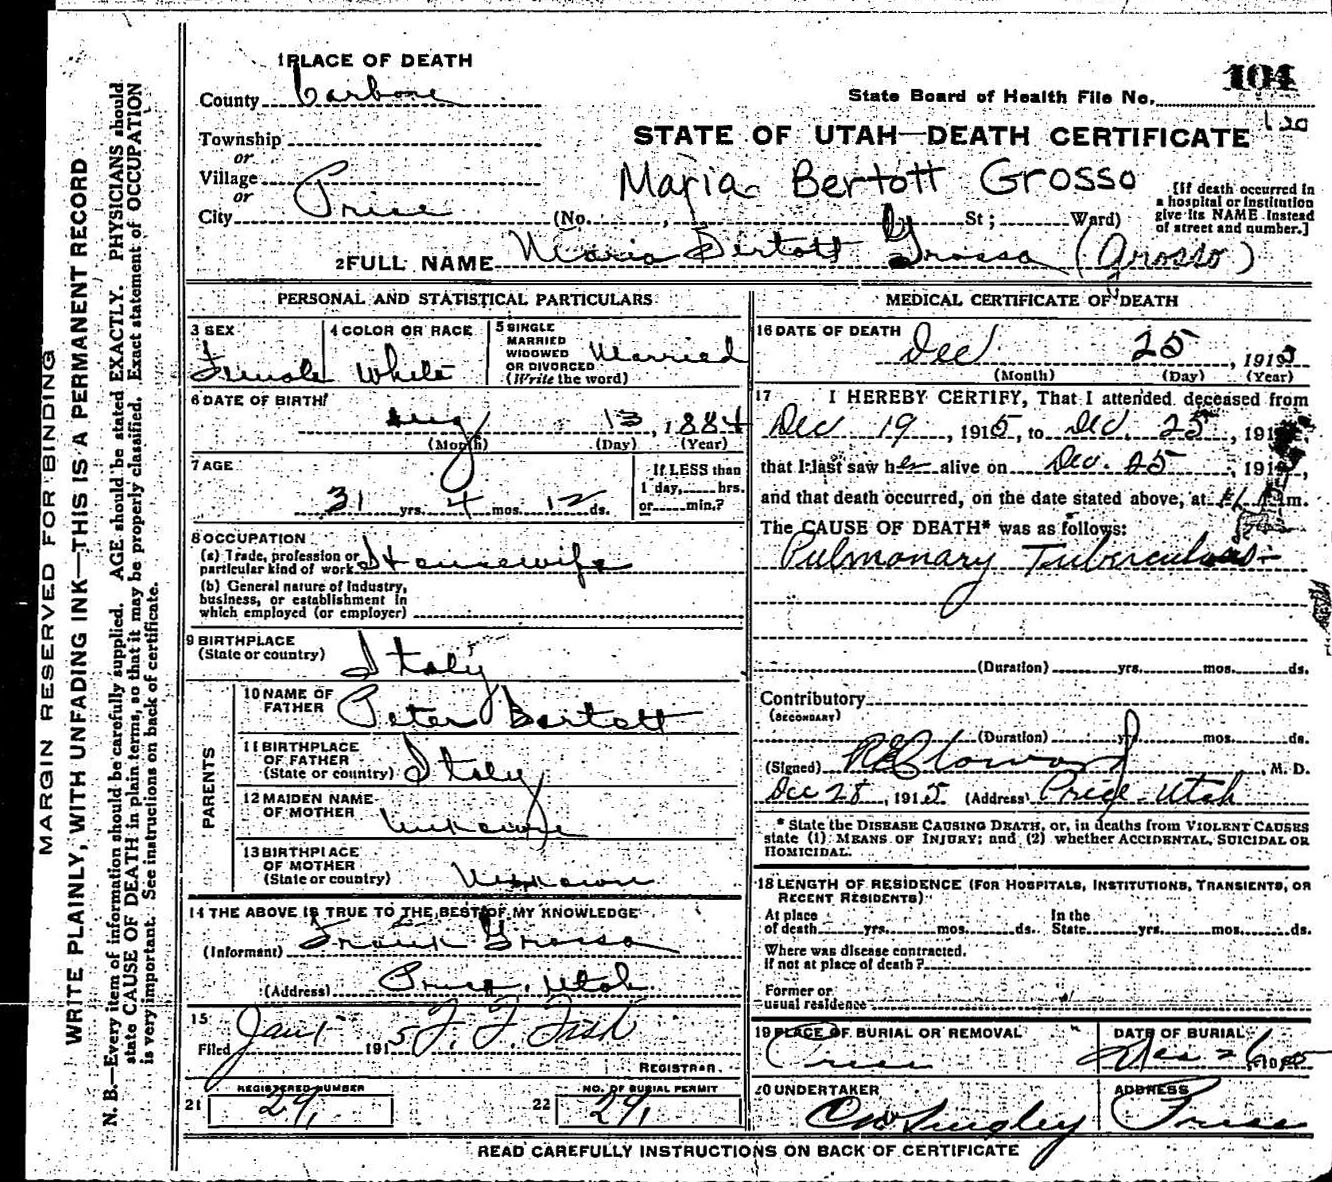 MARGIN RESERVED FOR BINDING
WRITE PLAINLY, WITH UNFADING INK—THIS IS A PERMANENT RECORD
N. B.—Every item of information should be carefully supplied. AGE should be stated EXACTLY. PHYSICIANS should
state CAUSE OF DEATH in plain terms, so that it may be properly classified. Exact statement of OCCUPATION
is very important. See instructions on back of certificate.
1 PLACE OF DEATH
County Carbone
Township
or
Village
or
City Price
104
State Board of Health File No.
120
STATE OF UTAH—DEATH CERTIFICATE
Maria Bertott Grosso
(No. , St; Ward)
[If death occurred in
a hospital or institution
give its NAME instead
of street and number.]
2 FULL NAME Maria Bertott Grosso (Grosso)
PERSONAL AND STATISTICAL PARTICULARS
3 SEX
Female
4 COLOR OR RACE
White
5 SINGLE
MARRIED
WIDOWED
OR DIVORCED
(Write the word)
Married
6 DATE OF BIRTH
Aug 13, 1884
(Month) (Day) (Year)
7 AGE
31 yrs. 4 mos. 12 ds.
If LESS than
1 day, hrs.
or min.?
8 OCCUPATION
(a) Trade, profession or
particular kind of work Housewife
(b) General nature of industry,
business, or establishment in
which employed (or employer)
9 BIRTHPLACE
(State or country) Italy
PARENTS
10 NAME OF
FATHER Peter Bertott
11 BIRTHPLACE
OF FATHER
(State or country) Italy
12 MAIDEN NAME
OF MOTHER Unknown
13 BIRTHPLACE
OF MOTHER
(State or country) Unknown
14 THE ABOVE IS TRUE TO THE BEST OF MY KNOWLEDGE
(Informant) Frank Grosso
(Address) Price, Utah
15
Filed Jan 1 1915 F. F. Fisk
REGISTRAR.
21 REGISTERED NUMBER
29,
22 NO. OF BURIAL PERMIT
29,
MEDICAL CERTIFICATE OF DEATH
16 DATE OF DEATH
Dec 25, 1915
(Month) (Day) (Year)
17 I HEREBY CERTIFY, That I attended deceased from
Dec 19, 1915, to Dec. 25, 191
that I last saw her alive on Dec. 25, 191 ,
and that death occurred, on the date stated above, at m.
The CAUSE OF DEATH* was as follows:
Pulmonary Tuberculosis
(Duration) yrs. mos. ds.
Contributory
(SECONDARY)
(Duration) yrs. mos. ds.
(Signed) M. D.
Dec 28, 1915 (Address) Price Utah
* State the DISEASE CAUSING DEATH, or, in deaths from VIOLENT CAUSES
state (1) MEANS OF INJURY; and (2) whether ACCIDENTAL, SUICIDAL OR
HOMICIDAL.
18 LENGTH OF RESIDENCE (FOR HOSPITALS, INSTITUTIONS, TRANSIENTS, OR
RECENT RESIDENTS)
At place
of death yrs. mos. ds.
In the
State yrs. mos. ds.
Where was disease contracted.
If not at place of death?
Former or
usual residence
19 PLACE OF BURIAL OR REMOVAL
Price
DATE OF BURIAL
Dec 26, 1915
20 UNDERTAKER
ADDRESS
Price
READ CAREFULLY INSTRUCTIONS ON BACK OF CERTIFICATE